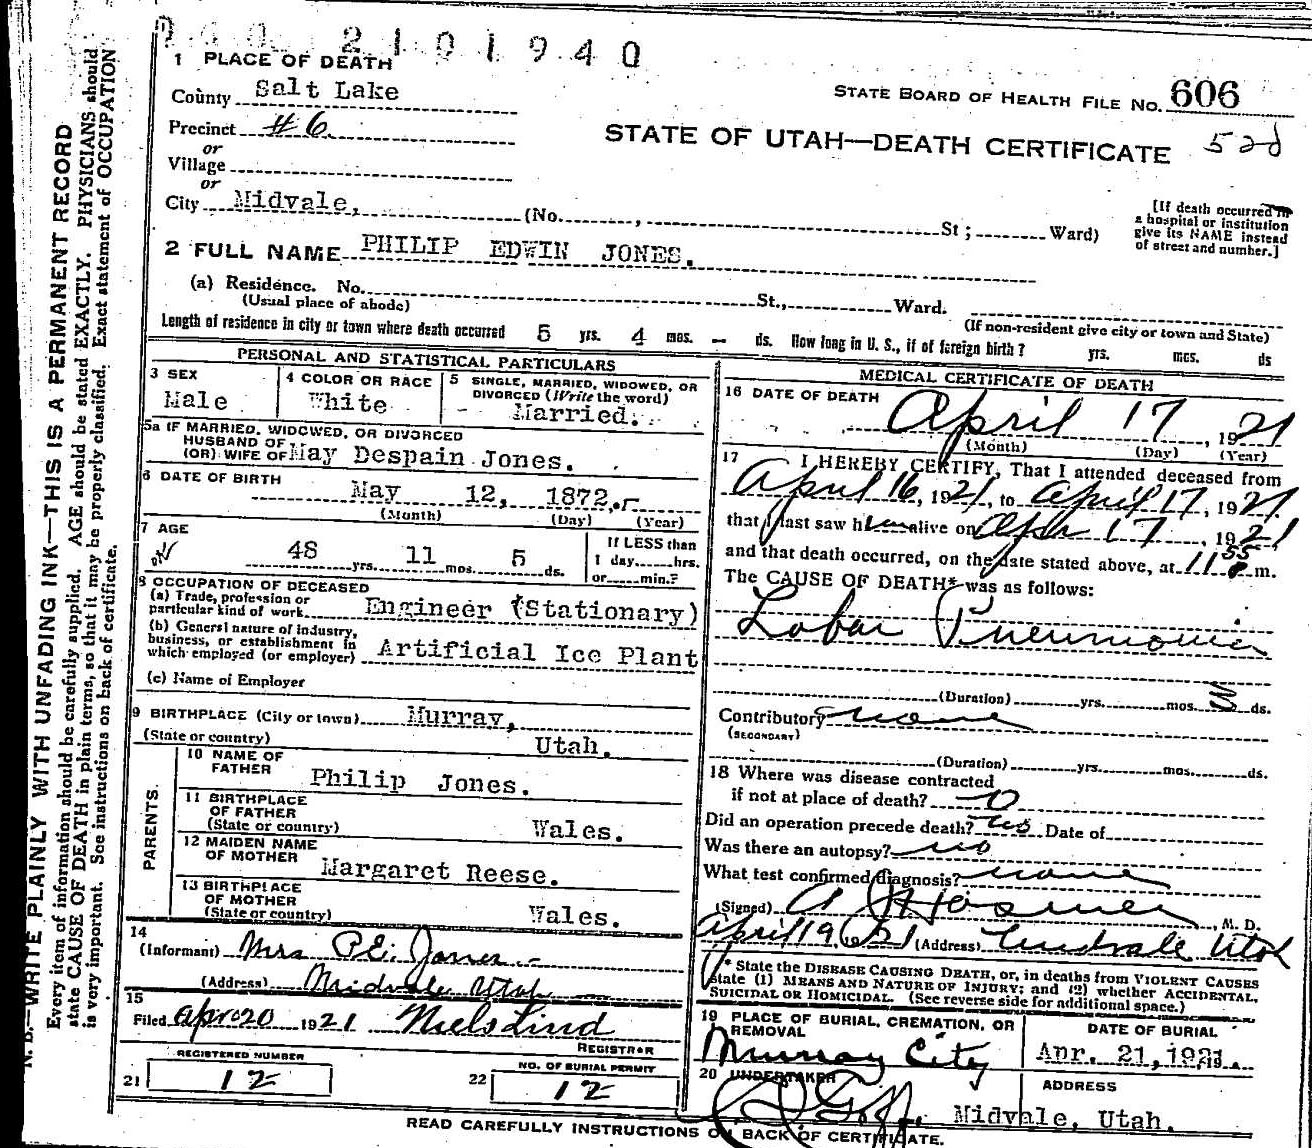 2 1 0 1 9 4 0
1 PLACE OF DEATH
County Salt Lake
STATE BOARD OF HEALTH FILE NO. 606
Precinct #6
STATE OF UTAH—DEATH CERTIFICATE 52d
or
Village
or
City Midvale, (No. , St ; Ward)
[If death occurred in
a hospital or institution
give its NAME instead
of street and number.]
2 FULL NAME PHILIP EDWIN JONES.
(a) Residence. No. St., Ward.
(Usual place of abode)
(If non-resident give city or town and State)
Length of residence in city or town where death occurred 5 yrs. 4 mos. – ds. How long in U. S., if of foreign birth? yrs. mos. ds
PERSONAL AND STATISTICAL PARTICULARS
3 SEX
Male
4 COLOR OR RACE
White
5 SINGLE, MARRIED, WIDOWED, OR
DIVORCED (Write the word)
Married.
5a IF MARRIED, WIDOWED, OR DIVORCED
HUSBAND OF
(OR) WIFE OF May Despain Jones.
6 DATE OF BIRTH
May 12, 1872.
(Month) (Day) (Year)
7 AGE
48 yrs. 11 mos. 5 ds.
If LESS than
1 day, hrs.
or min.?
8 OCCUPATION OF DECEASED
(a) Trade, profession or
particular kind of work Engineer (Stationary)
(b) General nature of industry,
business, or establishment in
which employed (or employer) Artificial Ice Plant
(c) Name of Employer
9 BIRTHPLACE (City or town) Murray,
(State or country) Utah.
PARENTS.
10 NAME OF
FATHER Philip Jones.
11 BIRTHPLACE
OF FATHER
(State or country) Wales.
12 MAIDEN NAME
OF MOTHER Margaret Reese.
13 BIRTHPLACE
OF MOTHER
(State or country) Wales.
14
(Informant) Mrs P.E. Jones
(Address) Midvale Utah
15
Filed Apr 20 1921 Niels Lind
REGISTRAR
REGISTERED NUMBER
21 12
NO. OF BURIAL PERMIT
22 12
MEDICAL CERTIFICATE OF DEATH
16 DATE OF DEATH
April 17, 1921
(Month) (Day) (Year)
17 I HEREBY CERTIFY, That I attended deceased from
April 16, 1921, to April 17, 1921.
that I last saw him alive on Apr 17, 1921,
and that death occurred, on the date stated above, at 11 55 P m.
The CAUSE OF DEATH* was as follows:
Lobar Pneumonia
(Duration) yrs. mos. 5 ds.
Contributory none
(SECONDARY)
(Duration) yrs. mos. ds.
18 Where was disease contracted
if not at place of death? 0
Did an operation precede death? no Date of
Was there an autopsy? no
What test confirmed diagnosis? none
(Signed) , M. D.
April 19, 1921 (Address) Midvale Utah
* State the DISEASE CAUSING DEATH, or, in deaths from VIOLENT CAUSES
state (1) MEANS AND NATURE OF INJURY; and (2) whether ACCIDENTAL,
SUICIDAL OR HOMICIDAL. (See reverse side for additional space.)
19 PLACE OF BURIAL, CREMATION, OR
REMOVAL
Murray City
DATE OF BURIAL
Apr. 21, 1921.
20 UNDERTAKER
ADDRESS
Midvale, Utah.
READ CAREFULLY INSTRUCTIONS ON BACK OF CERTIFICATE.
N. B.—WRITE PLAINLY WITH UNFADING INK—THIS IS A PERMANENT RECORD
Every item of information should be carefully supplied. AGE should be stated EXACTLY. PHYSICIANS should
state CAUSE OF DEATH in plain terms, so that it may be properly classified. Exact statement of OCCUPATION
is very important. See instructions on back of certificate.